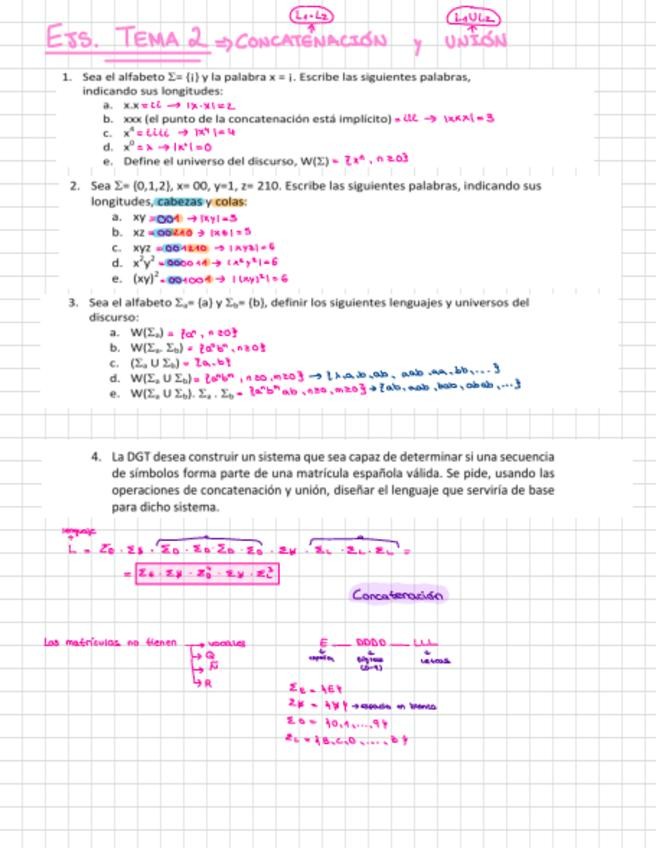 L1·L2
L1UL2
EJS. TEMA 2 ⇒ CONCATENACIÓN y UNIÓN
1. Sea el alfabeto Σ= {i} y la palabra x = i. Escribe las siguientes palabras,
indicando sus longitudes:
a. x.x = ii → |x·x| = 2
b. xxx (el punto de la concatenación está implícito) = iii → |xxx| = 3
c. x⁴ = iiii → |x⁴| = 4
d. x⁰ = λ → |x⁰| = 0
e. Define el universo del discurso, W(Σ) = {xⁿ, n≥0}
2. Sea Σ= {0,1,2}, x= 00, y=1, z= 210. Escribe las siguientes palabras, indicando sus
longitudes, cabezas y colas:
a. xy = 001 → |xy| = 3
b. xz = 00210 → |xz| = 5
c. xyz = 001210 → |xyz| = 6
d. x²y² = 000011 → |x²y²| = 6
e. (xy)² = 001001 → |(xy)²| = 6
3. Sea el alfabeto Σₐ= {a} y Σb= {b}, definir los siguientes lenguajes y universos del
discurso:
a. W(Σₐ) = {aⁿ, n≥0}
b. W(Σₐ. Σb) = {aⁿbⁿ, n≥0}
c. (Σₐ U Σb) = {a,b}
d. W(Σₐ U Σb) = {aⁿbᵐ, n≥0, m≥0} → {λ,a,b,ab, aab, aa, bb,...}
e. W(Σₐ U Σb). Σₐ . Σb = {aⁿbᵐab, n≥0, m≥0} → {ab, aab, bab, abab,...}
4. La DGT desea construir un sistema que sea capaz de determinar si una secuencia
de símbolos forma parte de una matrícula española válida. Se pide, usando las
operaciones de concatenación y unión, diseñar el lenguaje que serviría de base
para dicho sistema.
lenguaje
L = ΣE · Σ␢ · ΣD · ΣD · ΣD · ΣD · Σ␢ · ΣL · ΣL · ΣL =
= ΣE · Σ␢ · ΣD⁴ · Σ␢ · ΣL³
Concatenación
Las matrículas no tienen → vocales
→ Q
→ Ñ
→ R
E __ DDDD __ LLL
españa
dígitos
(0-9)
letras
ΣE = {E}
Σ␢ = {␢} → espacio en blanco
ΣD = {0,1,...,9}
ΣL = {B,C,D,...,Z}